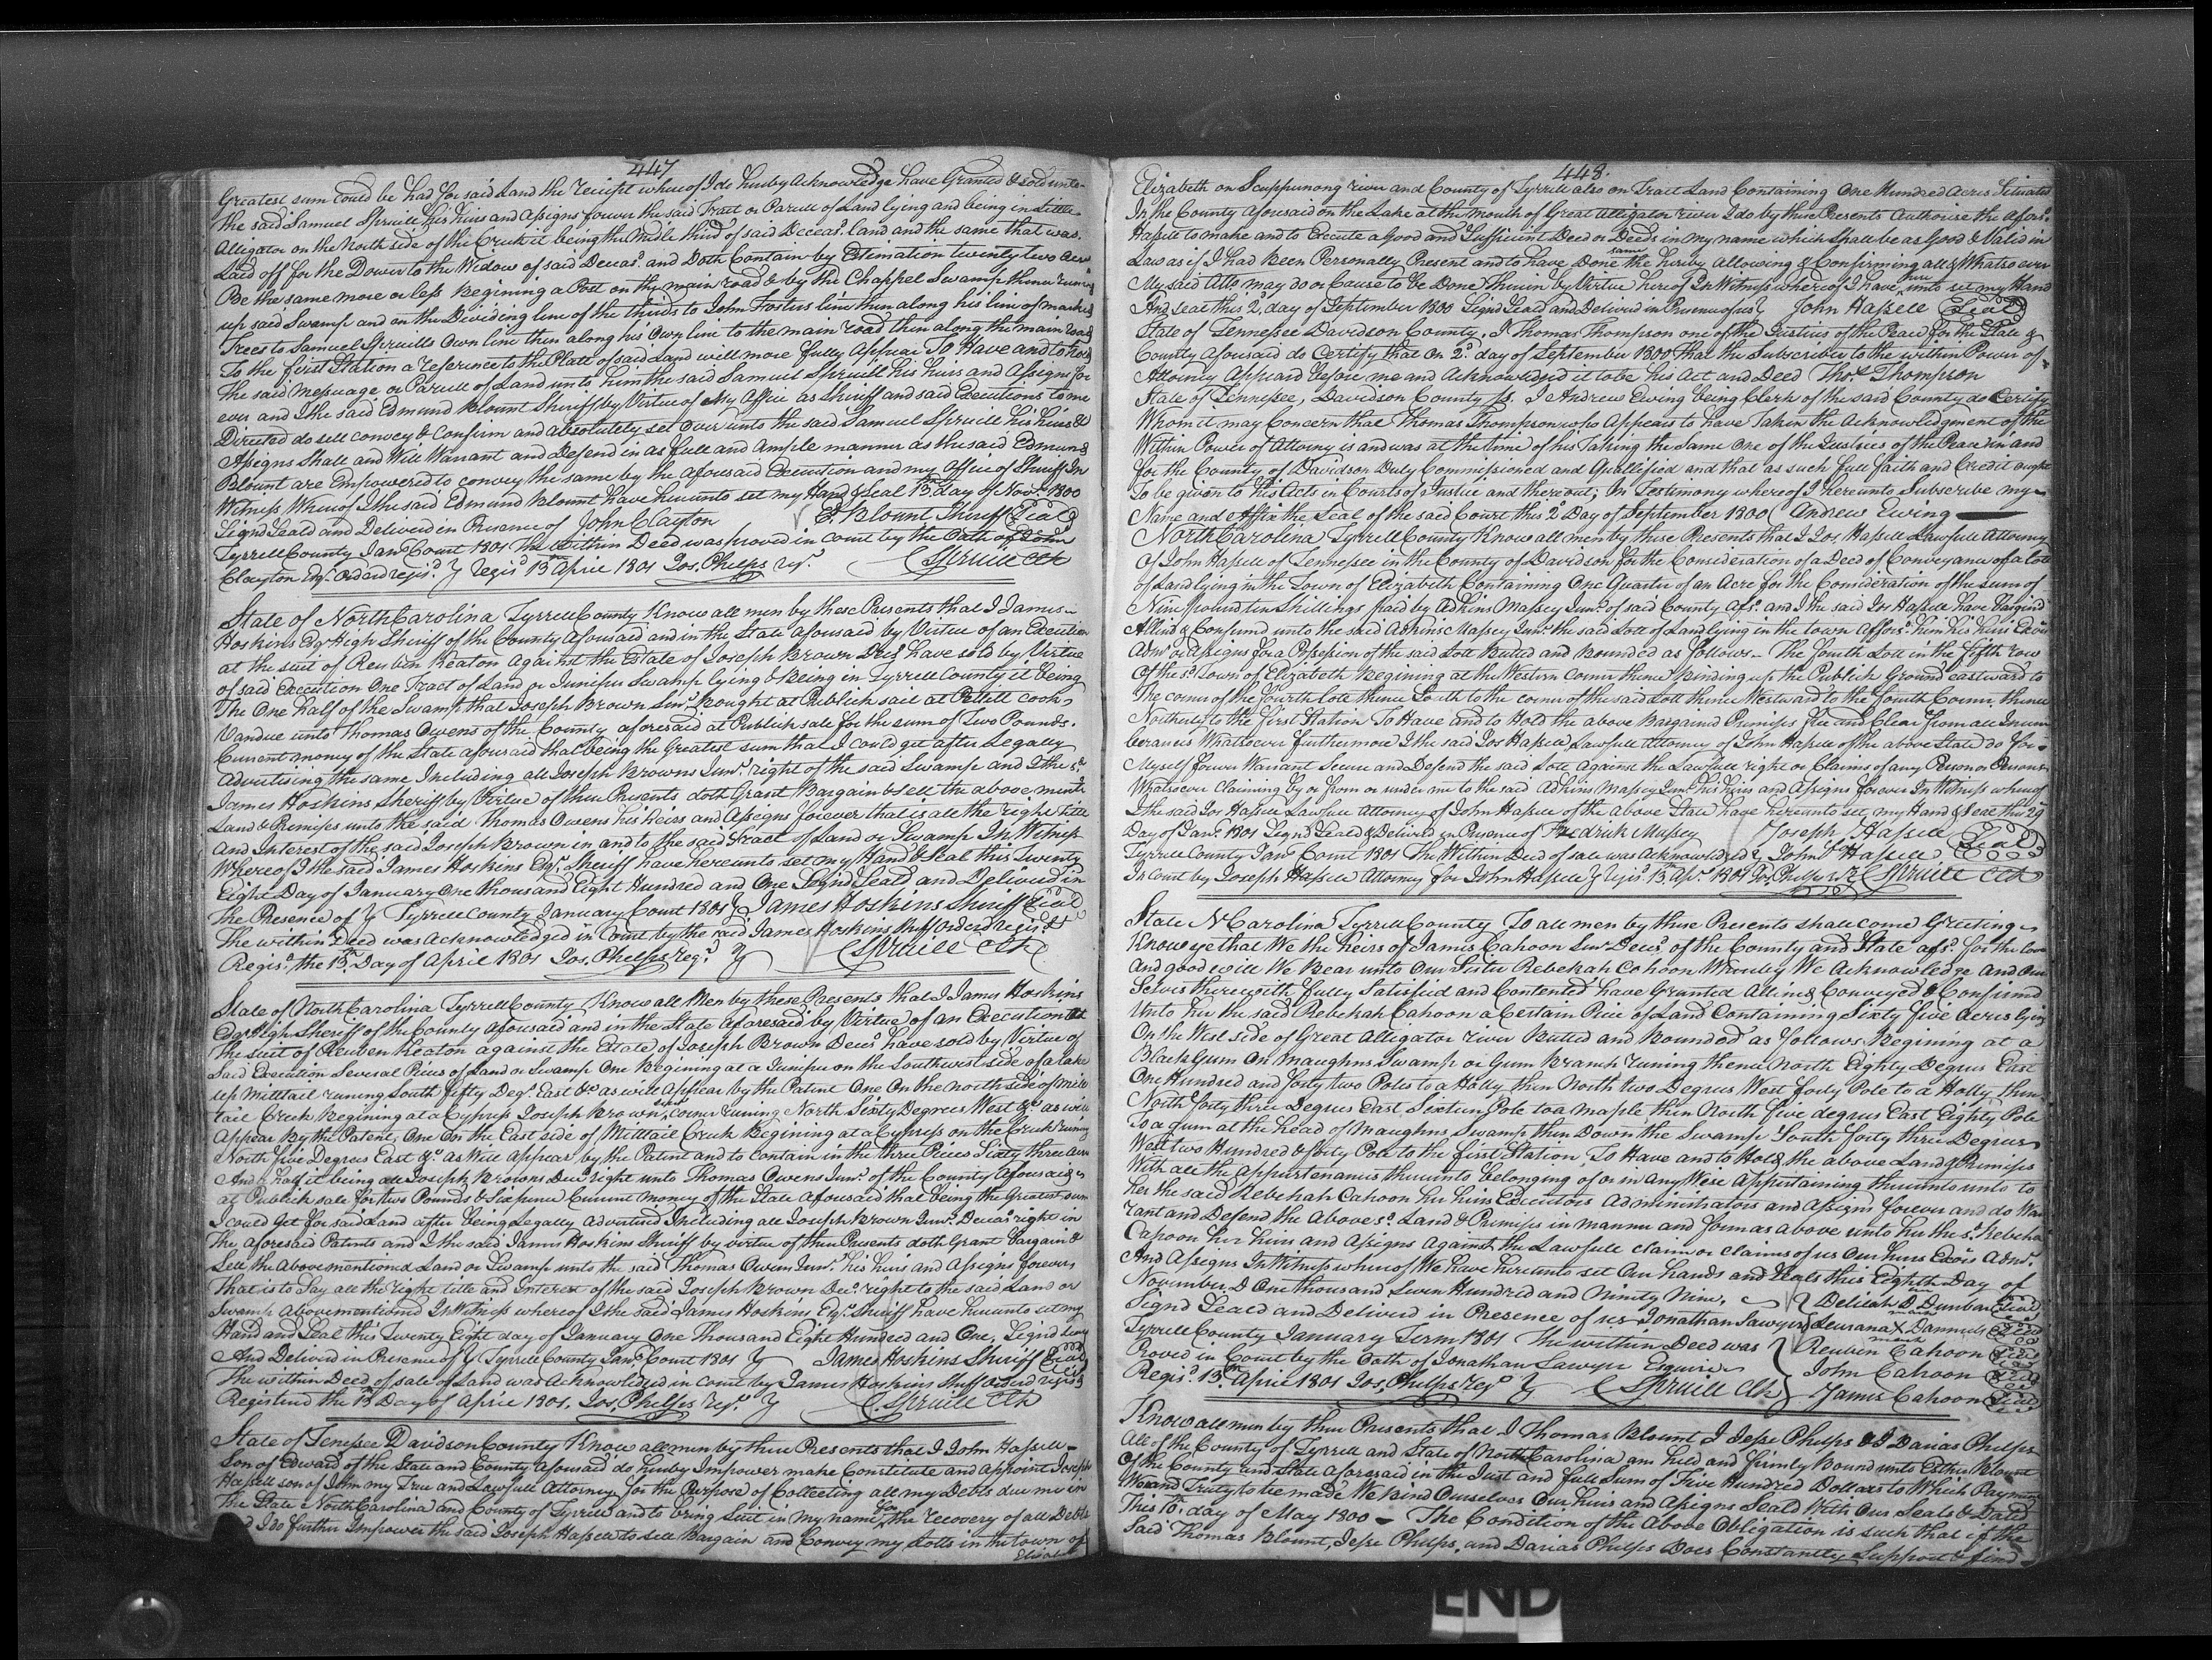 447
Greatest sum Could be had for said Land the Receipt whereof I do hereby Acknowledge have Granted & sold unto
the said Samuel Spruill his heirs and Assigns forever the said Tract or Parcell of Land lying and being in Little
Alligator on the North side of the Creek it being the Midle third of said Deceasd. land and the same that was
Laid off for the Dower to the Widow of said Deceasd. and Doth Contain by Estimation twenty two Acres
Be the same more or less Begining a Post on thy main road & by the Chappel Swamp thence runing
up said Swamp and on the Dividing line of the thirds to John Fosters line then along his line of marked
Trees to Samuel Spruills Own line then along his Own line to the main road then along the main road
To the first Station a reference to the Platt of said Land will more fully Appear To Have and to hold
the said Messuage or Parcell of Land unto him the said Samuel Spruill his heirs and Assigns for
ever and I the said Edmund Blount Sheriff by Virtue of My Office as Sheriff and said Executions to me
Directed do sell convey & Confirm and absolutely set Over unto the said Samuel Spruill his heirs &
Assigns Shall and Will Warrant and Defend in as full and Ample manner as the said Edmund
Blount are Empowered to convey the same by the aforesaid Execution and my Office of Sheriff In
Witness Whereof I the said Edmund Blount have hereunto set my Hand & Seal 13th. day of Novr. 1800
Signd Seald and Delivered in Presence of John Clayton E. Blount Sheriff Seal
Tyrrell County Jany. Court 1801 The Within Deed was proved in court by the Oath of John
Clayton Esq. Ordered regisd. Regisd 13th April 1801 Jos. Phelps regr. C Spruill Clk
State of North Carolina Tyrrell County Know all men by these Presents that I James
Hoskins Esqr High Sheriff of the County aforesaid and in the State aforesaid by Virtue of an Execution
at the suit of Reuben Keaton against the Estate of Joseph Brown Decd. have sold by Virtue
of said Execution One Tract of Land or Juniper Swamp lying & Being in Tyrrell County it being
The One half of the Swamp that Joseph Brown Senr. Bought at Publick sail at Pettell cook
Vandue unto Thomas Owens of the County aforesaid at Publick sale for the sum of Two Pounds
Current money of the State aforesaid that being the Greatest sum that I could get after Legally
Advertising the same Including all Joseph Browns Junr. right of the said Swamp and I the sd.
James Hoskins Sheriff by Virtue of these Presents doth Grant Bargain & sell the above mentd
Land & Premises unto the said Thomas Owens his heirs and Assigns forever that is all the right title
And Interest of the said Joseph Brown in and to the said Tract of Land or Swamp In Witness
Whereof I the said James Hoskins Esqr. Sheriff have hereunto set my Hand & Seal this Twenty
Eight Day of January One thousand Eight Hundred and One Signd Seald and Deliverd in
The Presence of Tyrrell County January Court 1801 James Hoskins Sheriff Seal
The within Deed was Acknowledged in Court by the said James Hoskins Sheriff Orderd regisd
Regisd. the 13th. Day of April 1801 Jos. Phelps regr. C Spruill Clk
State of North Carolina Tyrrell County Know all Men by these Presents that I James Hoskins
Esqr High Sheriff of the County aforesaid and in the State aforesaid by Virtue of an Execution At
The suit of Reuben Keaton against the Estate of Joseph Brown Decd. have sold by Virtue of
Said Execution Several Pieces of Land or Swamp One Begining at a Juniper on the Southwest side of a lake
up Milltail runing South fifty Degs. East &c as will appear by the Patent One On the north side of Mill
tail Creek Begining at a Cypress Joseph Browns Senr corner runing North Sixty Degrees West &c as will
Appear By the Patent, One On the East side of Milltail Creek Begining at a Cypress on the Creek runing
North five Degrees East &c as Will appear by the Patent and to Contain in the three Pieces Sixty three acres
And a half it being all Joseph Browns Decd right unto Thomas Owens Junr. of the County aforesaid
at Publick sale for two Pounds & Sixpence Current Money of the State aforesaid that being the Greatest sum
I could Get for said Land after being Legally advertised Including all Joseph Brown Junr. Decd. right in
The aforesaid Patents and I the said James Hoskins Sheriff by virtue of these Presents doth Grant bargain &
Sell the Above mentioned Land or Swamp unto the said Thomas Owens Junr. his heirs and Assigns forever
That is to Say all the right title and Interest of the said Joseph Brown Decd. right to the said Land or
Swamp above mentiond In Witness whereof I the said James Hoskins Esqr. Sheriff have hereunto set my
Hand and Seal this Twenty Eight day of January One Thousand Eight Hundred and One, Signd Seald
And Deliverd in Presence of Tyrrell County Jany. Court 1801 James Hoskins Sheriff Seal
The within Deed of sale of Land was Acknowledged in court by James Hoskins Sheriff Ordered regisd
Registered the 13th Day of April 1801. Jos. Phelps regr. C. Spruill Clk
State of Tenessee Davidson County Know all men by these Presents that I John Hassell
Son of Edward of the State and County aforesaid do hereby Impower make Constitute and appoint Joseph
Hassell son of John my True and Lawfull Attorney for the Purpose of Collecting all my Debts due me in
The State North Carolina and County of Tyrrell and to bring Suit in my name for the recovery of all Debts
I do further Impower the said Joseph Hassell to sell Bargain and Convey my Lotts in the town of
Elizabeth
448.
Elizabeth on Scuppernong river and County of Tyrrell also on Tract Land Containing One Hundred Acres Situated
In the County aforesaid on the Lake at the mouth of Great Alligator river I do by these Presents Authorise the aforsd.
Hassell to make and to Execute a Good and Sufficient Deed or Deeds in my name which Shall be as Good & Valid in
Law as if I had Been Personally Present and to have Done the same hereby allowing & Confirming all & Whatsoever
My said Atto may do or Cause to be Done therein by Virtue hereof In Witness whereof I have here unto set my Hand
And seal this 2d. day of September 1800 Signd Seald and Deliverd in Presence of us John Hassell Seal
State of Tennessee Davidson County, I Thomas Thompson one of the Justices of the Peace for the State &
County aforesaid do Certify that On 2d. day of September 1800 That the Subscriber to the within Power of
Attorney Appeard before me and Acknowledged it to be his Act and Deed Thos. Thompson
State of Tennessee, Davidson County ss. I Andrew Ewing being Clerk of the said County do Certify
Whom it may Concern that Thomas Thompson who Appears to have Taken the Acknowledgment of the
Within Power of Attorny is and was at the time of his Taking the Same One of the Justices of the Peace in and
for the County of Davidson Duly Commissioned and Quallified and that as such full faith and Credit ought
To be given to his Acts in Courts of Justice and thereout; In Testimony whereof I hereunto Subscribe my
Name and Affix the Seal of the said Court this 2d Day of September 1800 Andrew Ewing
North Carolina Tyrrell County Know all men by these Presents that I Jos Hassell Lawfull Attorney
Of John Hassell of Tennessee in the County of Davidson for the Consideration of a Deed of Conveyance of a Lott
of Land lying in the Town of Elizabeth Containing One Quarter of an Acre for the Consideration of the sum of
Nine Pound ten Shillings paid by Adkins Massey Junr. of said County afsd. and I the said Jos Hassell have bargind
Aliend & Confirmd unto the said Adkins Massey Junr. the said Lott of Land lying in the town afforsd. him his heirs Exors
Admr or Assigns for a Possession of the said Lott Butted and Bounded as follows The fourth Lott in the fifth row
Of the sd. Town of Elizabeth Begining at the Western Corner thence Binding up the Publick Ground eastward to
The corner of the fourth Lott thence South to the corner of the said Lott thence Westward to the fourth Corner, thence
Northerly to the first Station To Have and to Hold the above Bargained Premises free and Clear from all Incum
berances Whatsoever furthermore I the said Jos Hassell Lawfull Attorney of John Hassell of the above State do for
Myself forever Warrant Secure and Defend the said Lott Against the Lawfull right or Claims of any Person or Persons
Whatsoever Claiming by or from or under me to the said Adkins Massey Junr. his heirs and Assigns forever In Witness whereof
I the said Jos Hassell Lawfull Attorney of John Hassell of the above State have hereunto set my Hand & Seal this 29
Day of Jany. 1801 Signd Seald & Deliverd in Presence of Fredrick Massey Joseph Hassell Seal
Tyrrell County Jany Court 1801 The Within Deed of sale was Acknowledged John Hassell
In Court by Joseph Hassell Attorney for John Hassell Regisd. 13th. Apr. 1801 Jos. Phelps R C Spruill Clk
State N Carolina Tyrrell County To all men by these Presents shall come Greeting
Know ye that We the heirs of James Cahoon Senr Decd. of the County and State afsd. for the love
And good will We Bear unto Our Sister Rebekah Cahoon Whereby We Acknowledge and Our
Selves therewith fully Satisfied and Contented have Granted Aliend Conveyed & Confirmd
Unto her the said Rebekah Cahoon a Certain Piece of Land Containing Sixty five Acres lying
On the West side of Great Alligator river Butted and Bounded as follows Begining at a
Black Gum On Maughns Swamp or Gum Branch runing thence North Eighty Degrees East
One Hundred and forty two Poles to a Holly then North two Degrees West forty Pole to a Holly then
North forty three Degrees East Sixteen Pole to a maple then North five degrees East Eighty Pole
To a gum at the head of Maughns Swamp then Down the Swamp South forty three Degrees
West two Hundred & forty Pole to the first Station, To Have and to Hold the above Land & Premises
With all the Appurtenances thereunto belonging of or in any Wise Appertaining thereunto unto to
her the said Rebekah Cahoon her heirs Executors Administrators and Assigns forever and do War
rant and Defend the Above sd. Land & Premises in manner and form as above unto her the sd. Rebekah
Cahoon her heirs and Assigns Against the Lawfull claim or claims of us Our heirs Exors Admr.
And Assigns In Witness whereof We have hereunto set Our hands and Seals this Eighth Day of
November D One thousand Seven Hundred and Ninety Nine. Delilah D Dunbar Seal
Signd Seald and Deliverd in Presence of us Jonathan Sawyer Leurana X Dannuels Seal
Tyrrell County January Term 1801 The within Deed was Reuben Cahoon Seal
Proved in Court by the Oath of Jonathan Sawyer Esquire John Cahoon Seal
Regisd. 13th. April 1801 Jos. Phelps regr C Spruill Clk James Cahoon Seal
Know all men by these Presents that I Thomas Blount I Jesse Phelps & I Darias Phelps
All of the County of Tyrrell and State of North Carolina am held and firmly Bound unto Esther Blount
Of the County and State aforesaid in the Just and full Sum of Five Hundred Dollars to Which Payment
Well and Truly to be made We Bind Ourselves Our heirs and Assigns Seald With Our Seals & Dated
This 10th. day of May 1800 The Condition of the Above Obligation is such that if the
Said Thomas Blount, Jesse Phelps, and Darias Phelps Does Constantly Support & find
END